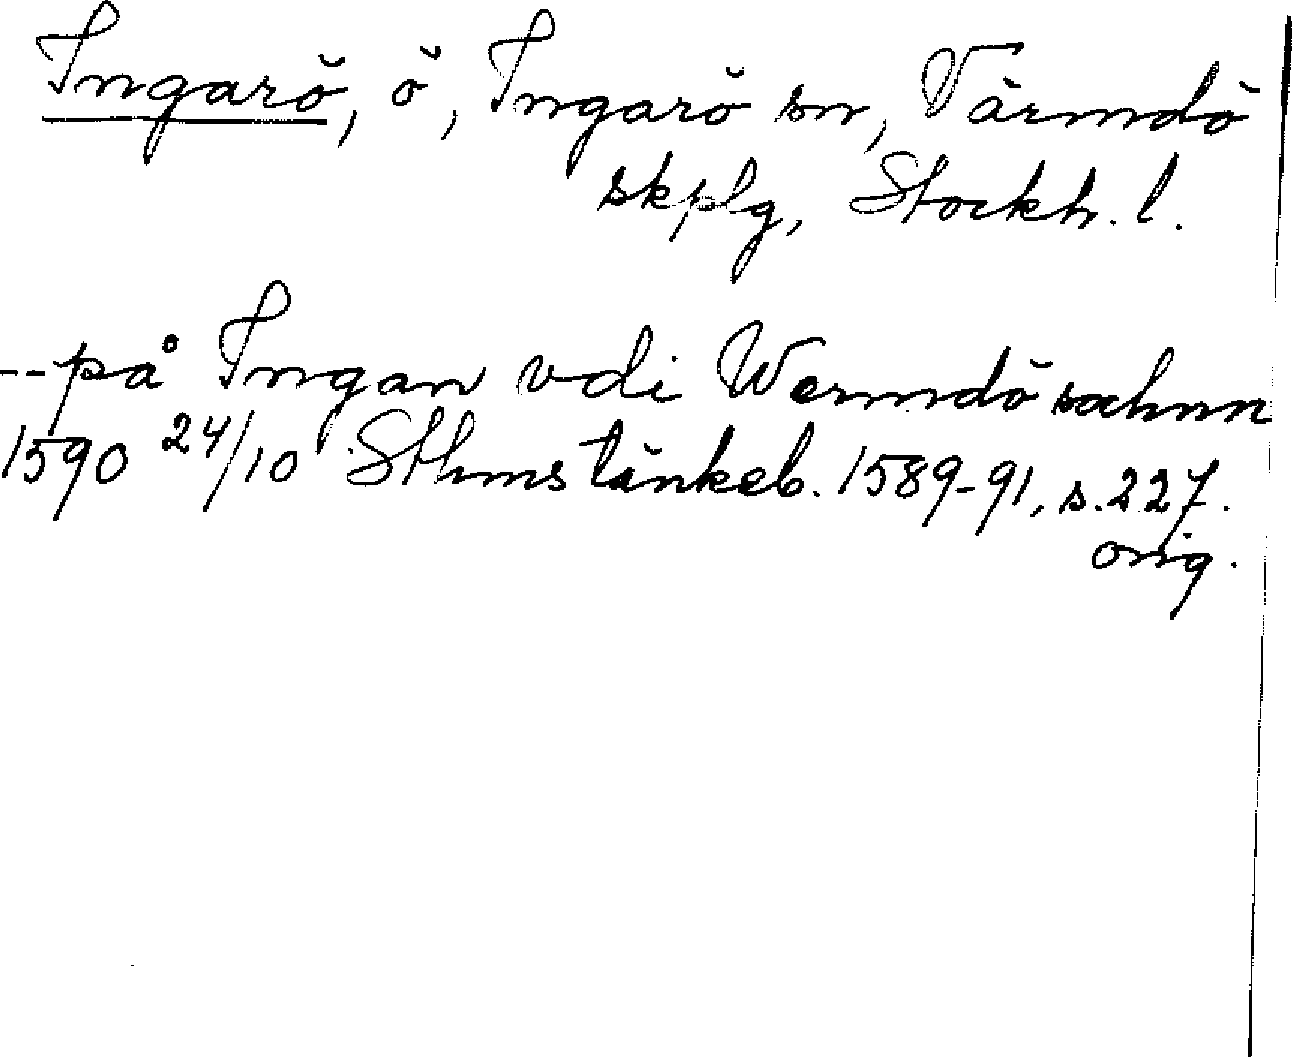 Ingarö, ö, Ingarö sn, Värmdö
skplg, Stockh. l.
-- på Ingan vdi Wermdö sochnn
1590 24/10 Sthms tänkeb. 1589-91, s. 227.
orig.